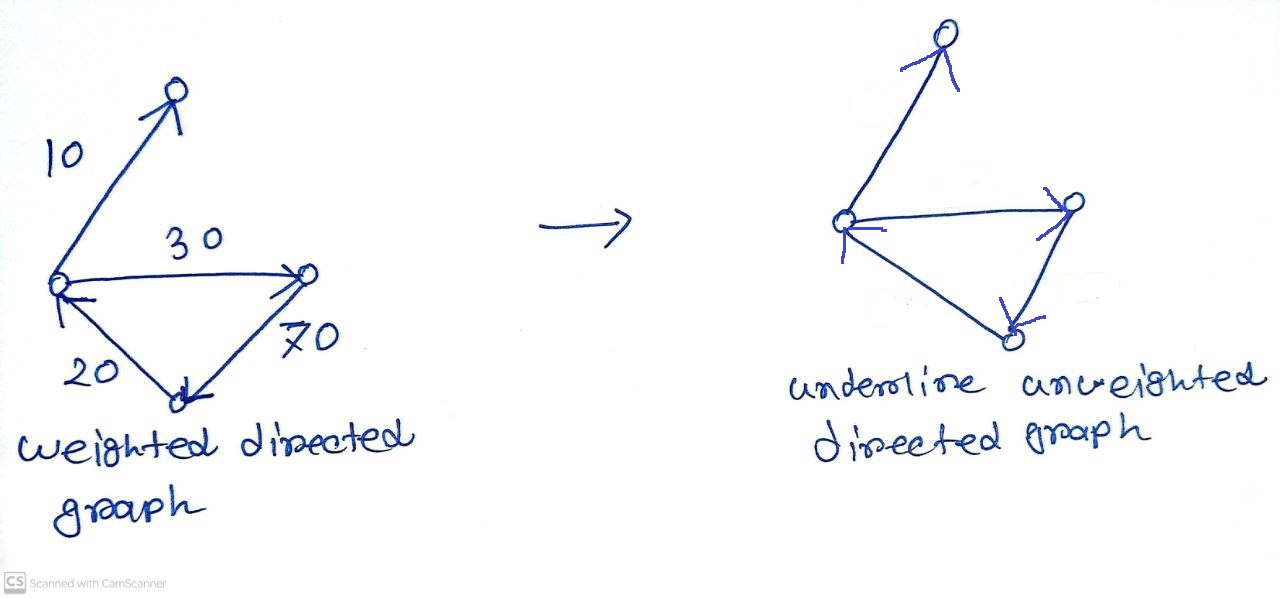 10
30
70
20
weighted directed
graph
underline unweighted
directed graph
CS Scanned with CamScanner